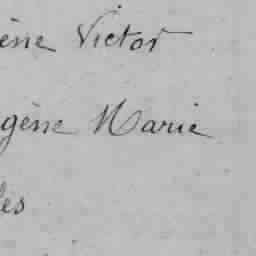 ène Victor
gène Marie
les